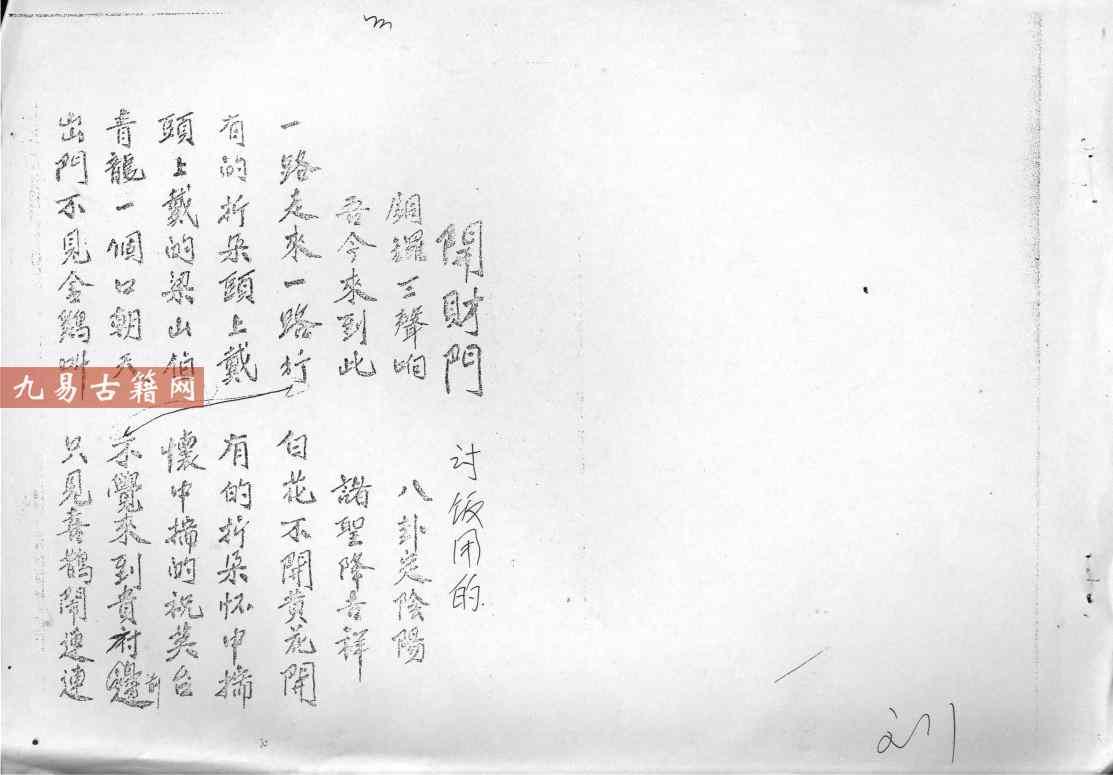 開財門 討饭用的
銅鑼三聲响 八卦定陰陽
吾今來到此 諸聖降吉祥
一路走來一路行 白花不開黄花開
有的折朵頭上戴 有的折朵怀中揣
頭上戴的梁山伯 懷中揣的祝英台
青龍一個口朝天 不覺來到貴府邊前
出門不見金鷄叫 只見喜鵲鬧連連
九易古籍网
刘